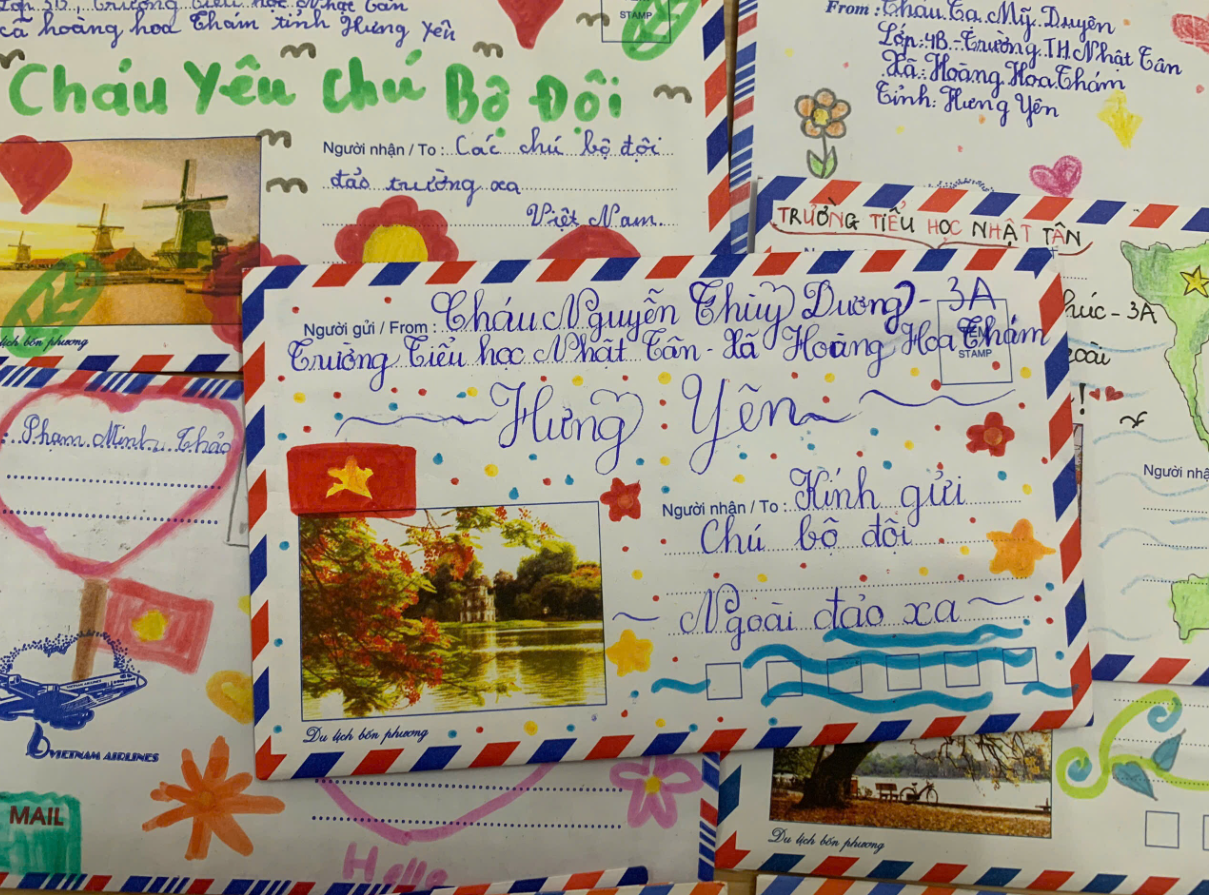 Lớp 3D, Trường Tiểu học Nhật Tân
xã hoàng hoa Thám tỉnh Hưng Yên
STAMP
Cháu Yêu chú Bộ Đội
Người nhận / To : Các chú bộ đội
đảo trường xa
Việt Nam.
lịch bốn phương
From : Cháu Tạ Mỹ Duyên
Lớp: 4B - Trường TH Nhật Tân
Xã: Hoàng Hoa Thám
Tỉnh: Hưng Yên
TRƯỜNG TIỂU HỌC NHẬT TÂN
húc - 3A
Người nhậ
Phạm Minh Thảo
VIETNAM AIRLINES
MAIL
Hello
Người gửi / From : Cháu Nguyễn Thùy Dương - 3A
Trường Tiểu học Nhật Tân - Xã Hoàng Hoa Thám
STAMP
Hưng Yên
Người nhận / To : Kính gửi
Chú bộ đội
Ngoài đảo xa
Du lịch bốn phương
Du lịch bốn phương